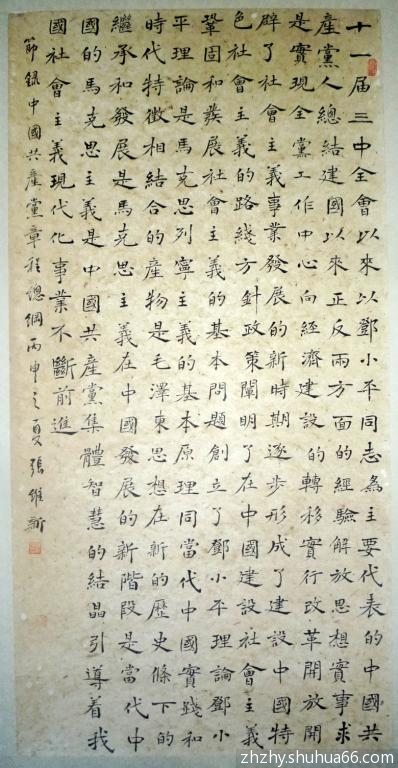 十一届三中全會以來以鄧小平同志為主要代表的中國共
產黨人總結建國以來正反兩方面的經驗解放思想實事求
是實現全黨工作中心向經濟建設的轉移實行改革開放開
辟了社會主義事業發展的新時期逐步形成了建設中國特
色社會主義的路綫方針政策闡明了在中國建設社會主義
鞏固和發展社會主義的基本問題創立了鄧小平理論鄧小
平理論是馬克思列寧主義的基本原理同當代中國實踐和
時代特徵相結合的產物是毛澤東思想在新的歷史條下的
繼承和發展是馬克思主義在中國發展的新階段是當代中
國的馬克思主義是中國共產黨集體智慧的結晶引導着我
國社會主義現代化事業不斷前進
節録中國共產黨章程總綱丙申之夏張維新
zhzhy.shuhua66.com